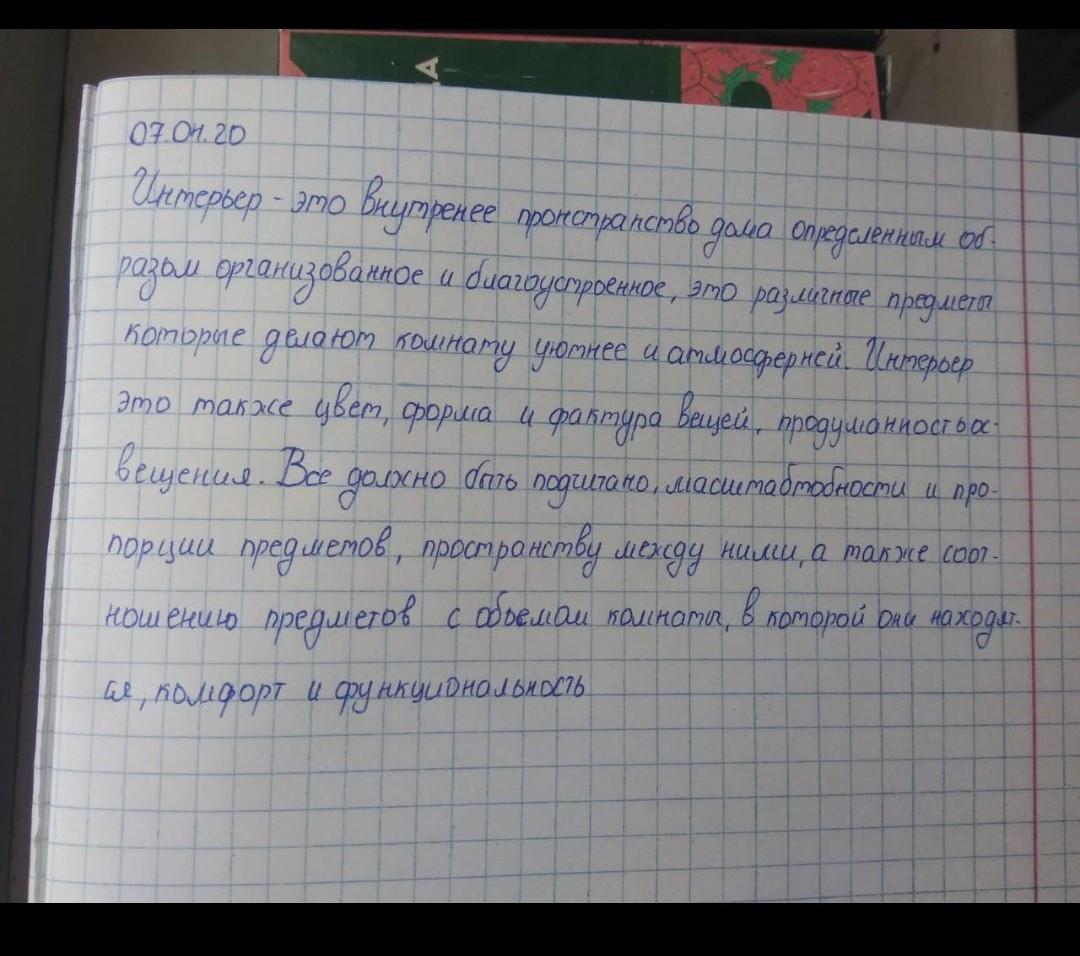 07.04.20
Интерьер - это внутренее пронстранство дома определенным об-
разом организованное и благоустроенное, это различные предметы
которые делают комнату уютнее и атмосферней. Интерьер
это также цвет, форма и фактура вещей, продуманность ос-
вещения. Все должно быть подчитано, масштабтобности и про-
порции предметов, пространству между ними, а также соот-
ношению предметов с объемом комнаты, в которой они находят-
ся, комфорт и функциональность